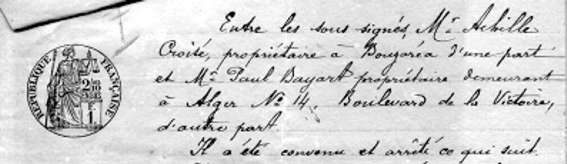 Entre les sous signés, Mr Achille
Croisé, propriétaire à Bouzaréa d'une part
et Mr Paul Bayart propriétaire demeurant
à Alger No 14, Boulevard de la Victoire,
d'autre part.
Il a été convenu et arrêté ce qui suit
RÉPUBLIQUE FRANÇAISE